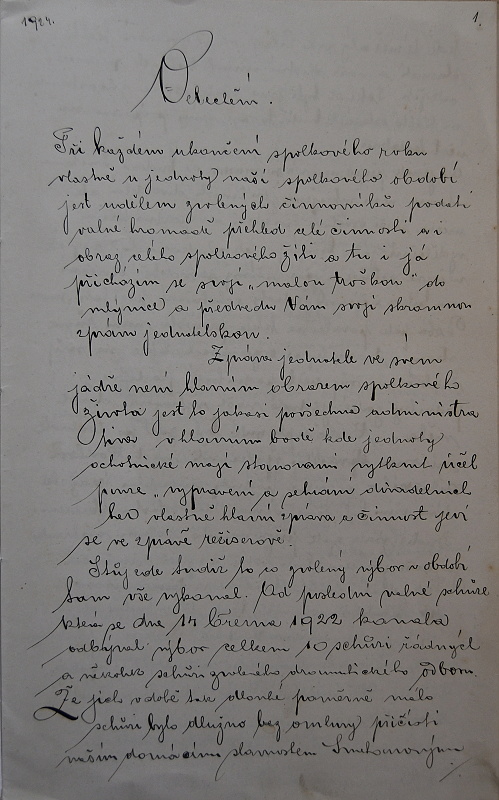 1924.
1.
Velectění.
Při každém ukončení spolkového roku
vlastně u jednoty naší spolkového období
jest údělem zvolených činovníků podati
valné hromadě přehled celé činnosti a i
obraz celého spolkového žití a tu i já
přicházím se svojí „malou troškou" do
mlýnice a předvedu Vám svoji skromnou
zprávu jednatelskou.
Zpráva jednatele ve svém
jádře není hlavním obrazem spolkového
života jest to jakási povšechná administra
tiva v hlavním bodě kde jednoty
ochotnické mají stanovami vytknut účel
pouze „vypravení a sehrání divadelních
her vlastně hlavní zpráva a činnost jeví
se ve zprávě režiserově.
Stůj zde tudíž to co zvolený výbor v období
tom vše vykonal. Od poslední valné schůze
která se dne 14 března 1922 konala
odbýval výbor celkem 10 schůzí řádných
a několik schůzí zvoleného dramatického odboru.
Že jich v době tak dlouhé poměrně málo
schůzí bylo dlužno bez omluvy přičísti
našim domácím slavnostem Smetanovým